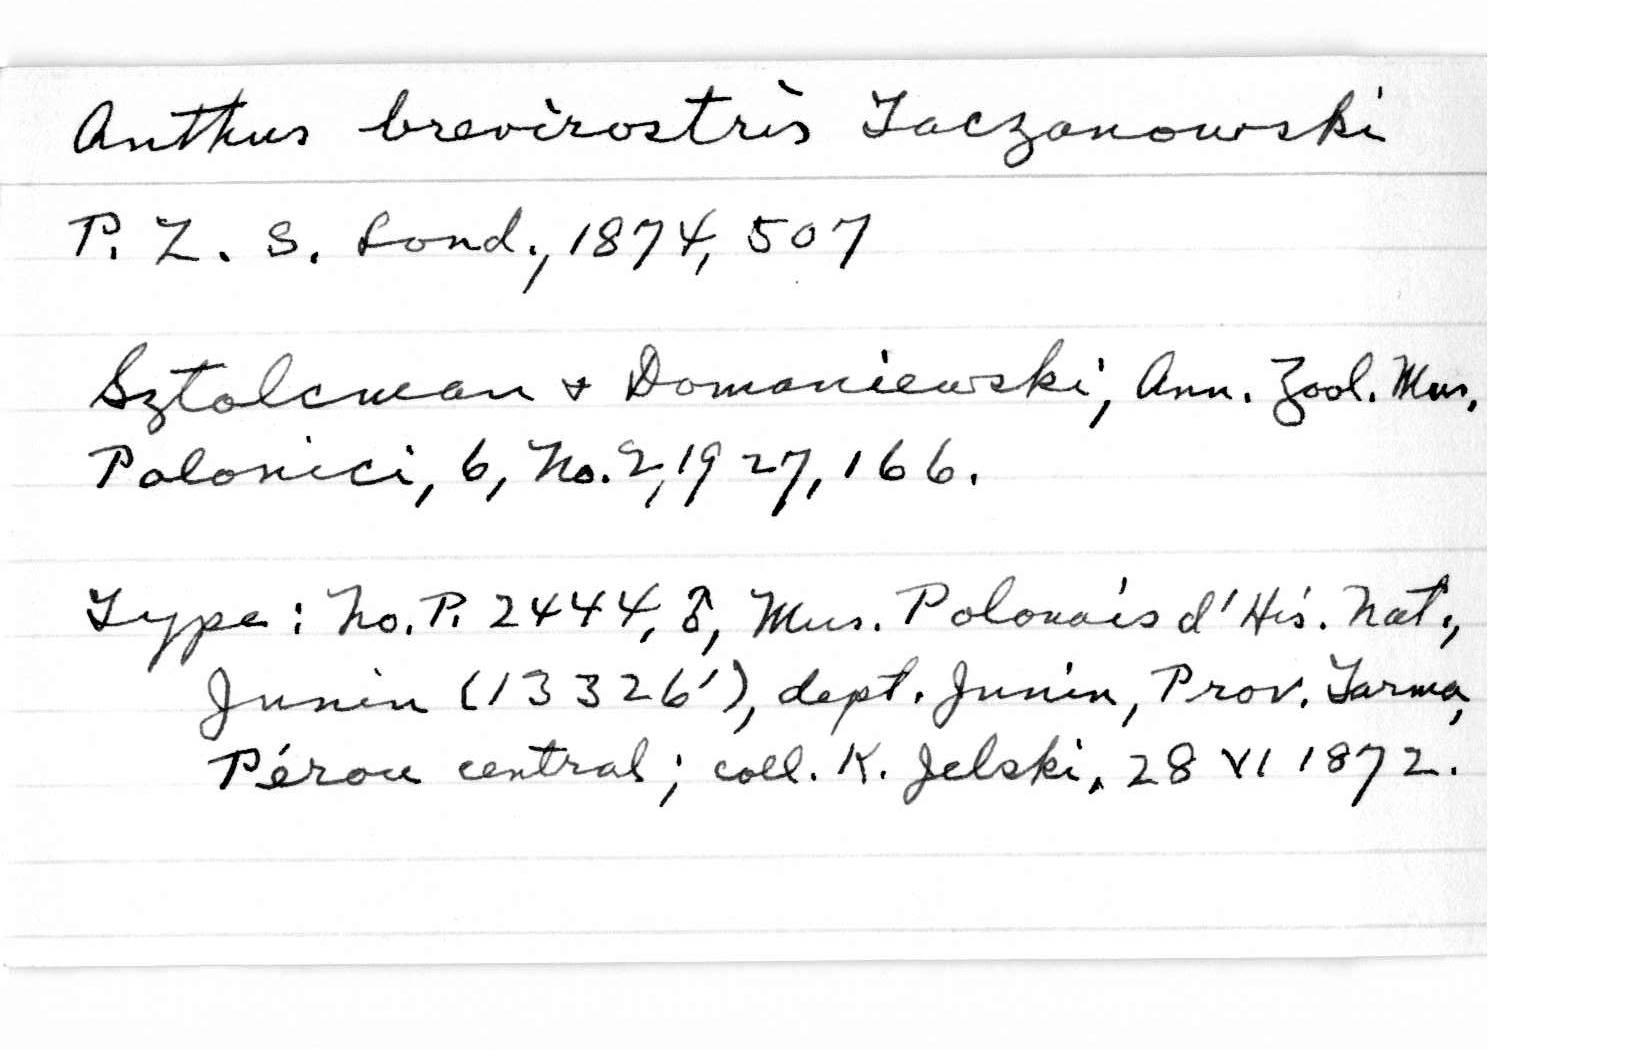 Anthus brevirostris Taczanowski
P. Z. S. Lond., 1874, 507
Sztolcman & Domaniewski, Ann. Zool. Mus.
Polonici, 6, No. 2, 1927, 166.
Type: No. P. 2444, ♂, Mus. Polonais d'His. Nat.,
Junin (13326'), dept. Junin, Prov. Tarma,
Pérou central; coll. K. Jelski, 28 VI 1872.